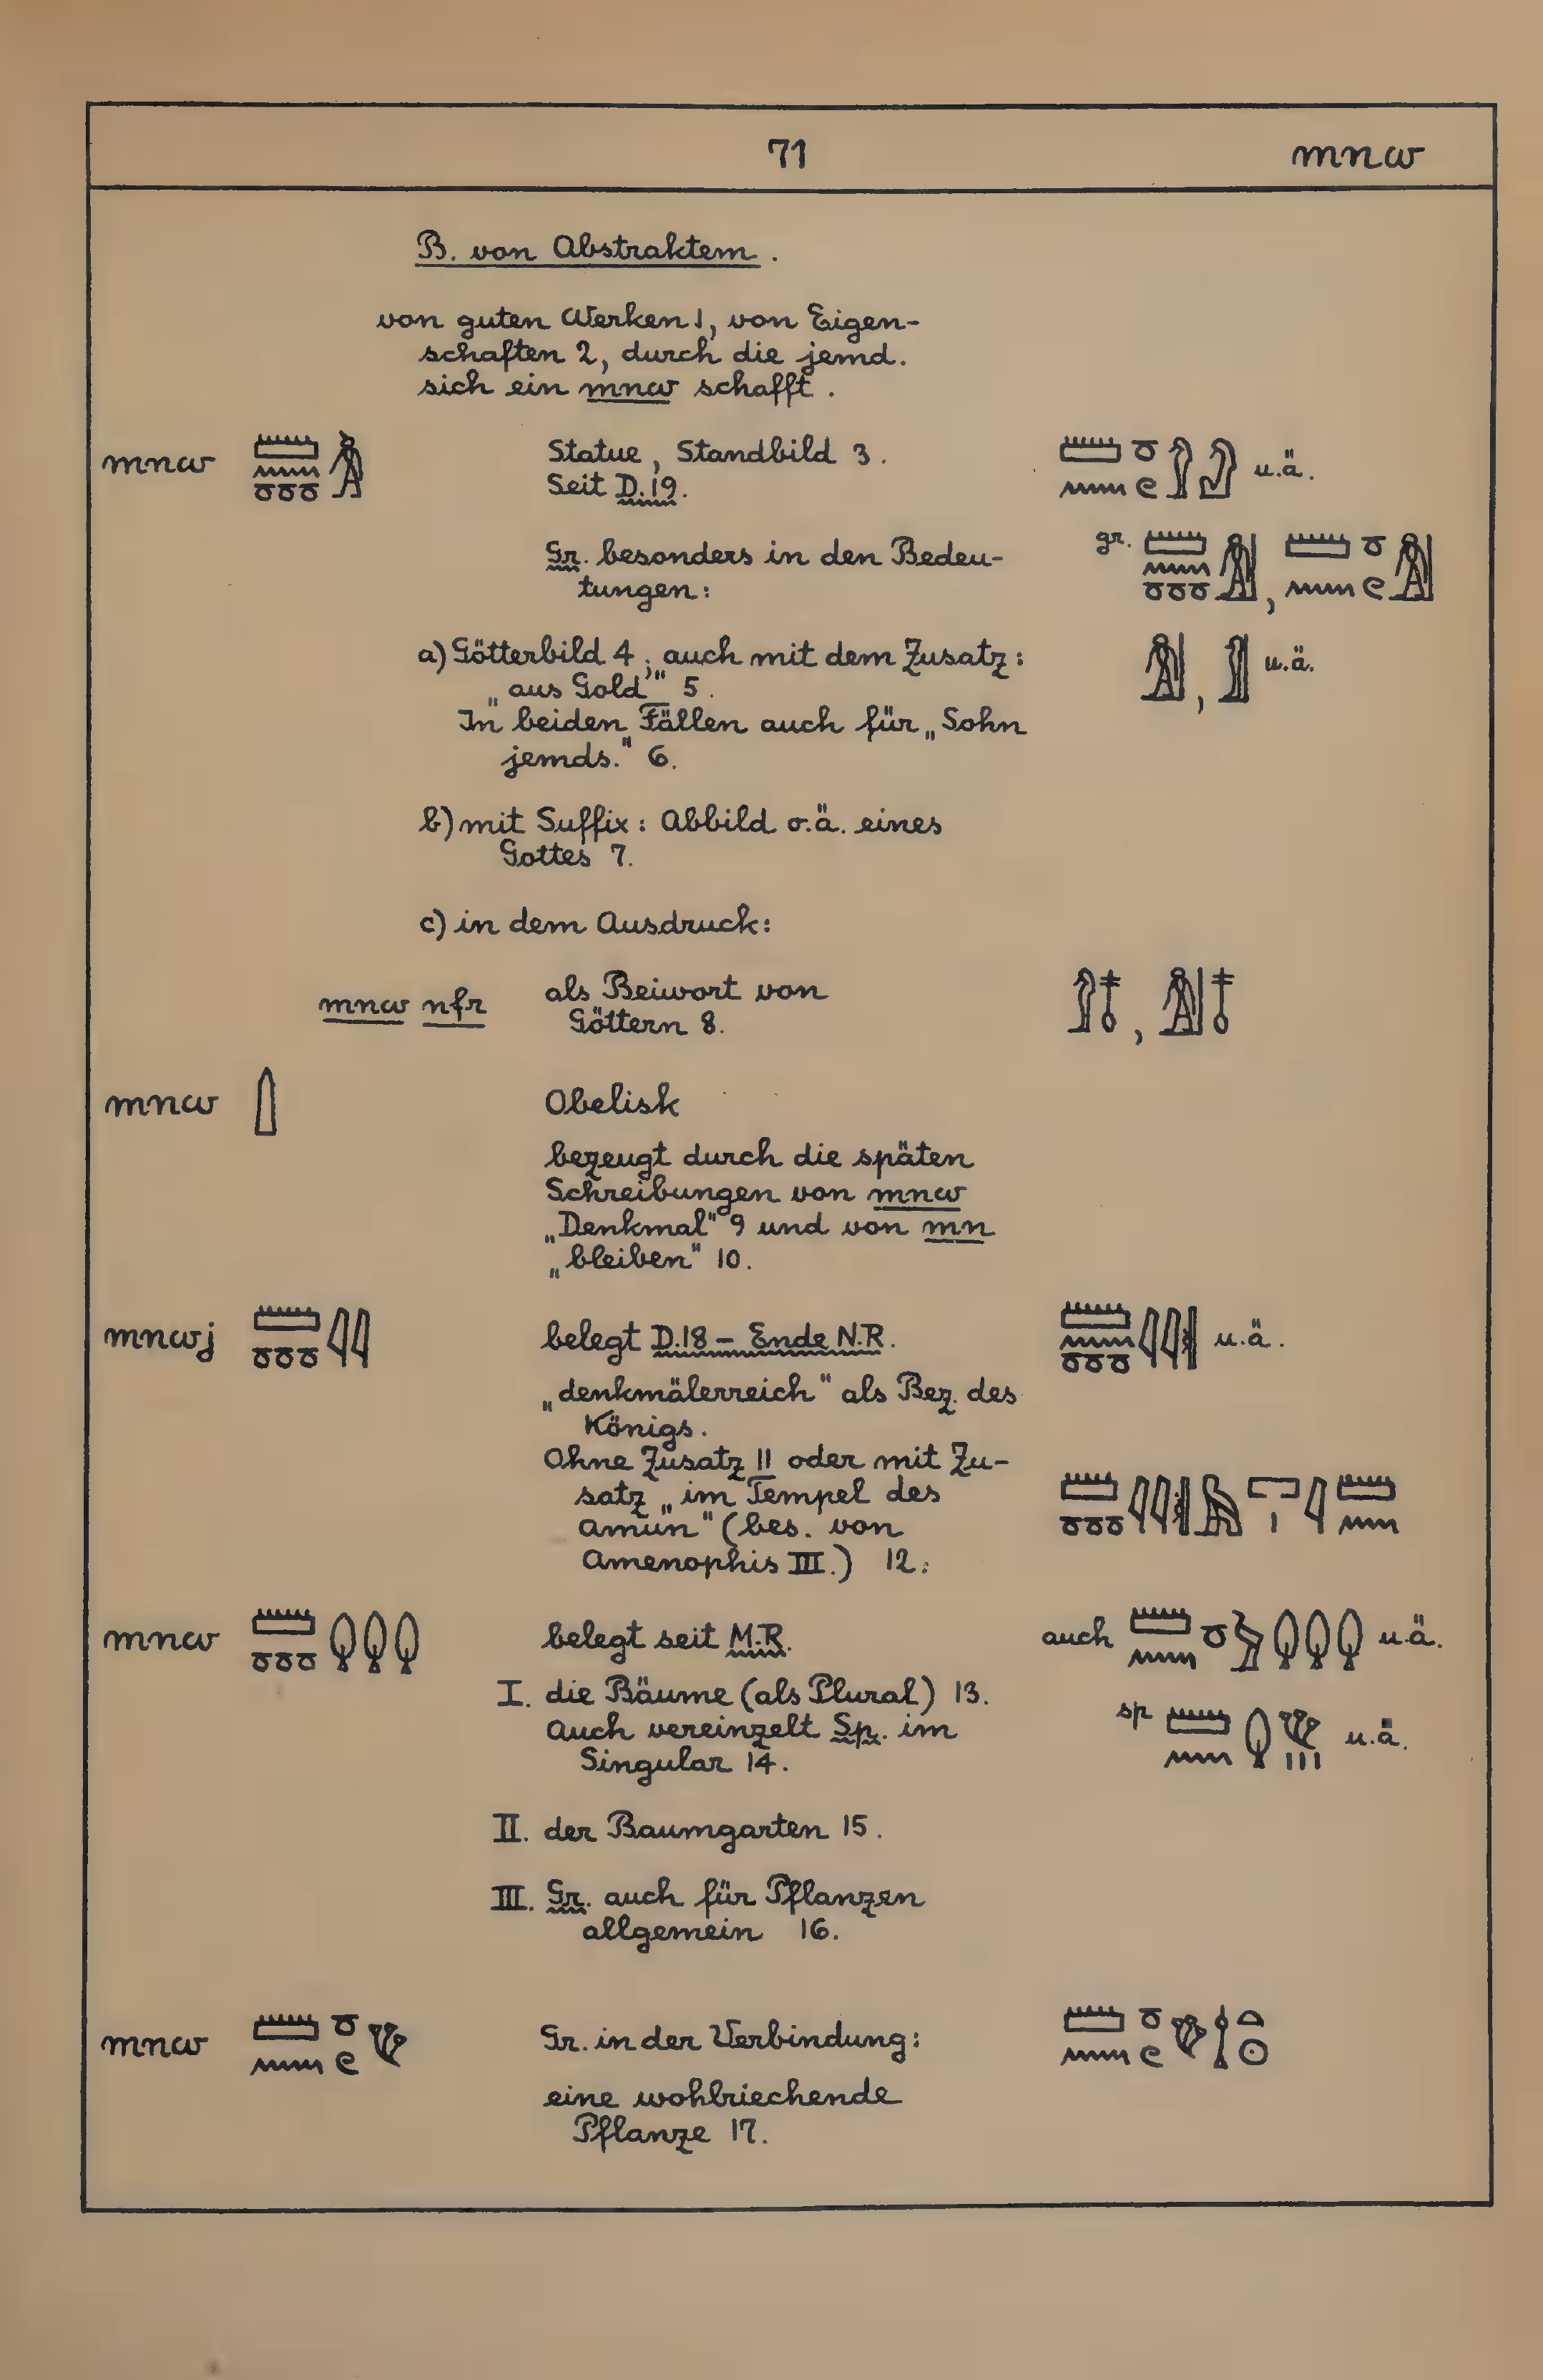 71 mnw
B. von Abstraktem.
von guten Werken 1, von Eigen-
schaften 2, durch die jemd.
sich ein mnw schafft.
mnw Statue, Standbild 3. u.ä.
Seit D. 19.
Gr. besonders in den Bedeu- gr.
tungen:
a) Götterbild 4; auch mit dem Zusatz: u.ä.
„aus Gold" 5.
In beiden Fällen auch für „Sohn
jemds." 6.
b) mit Suffix: Abbild o.ä. eines
Gottes 7.
c) in dem Ausdruck:
mnw nfr als Beiwort von
Göttern 8.
mnw Obelisk
bezeugt durch die späten
Schreibungen von mnw
„Denkmal" 9 und von mn
„bleiben" 10.
mnwj belegt D.18 – Ende N.R. u.ä.
„denkmälerreich" als Bez. des
Königs.
Ohne Zusatz 11 oder mit Zu-
satz „im Tempel des
Amun" (bes. von
Amenophis III.) 12:
mnw belegt seit M.R. auch u.ä.
I. die Bäume (als Plural) 13. sp u.ä.
Auch vereinzelt Sp. im
Singular 14.
II. der Baumgarten 15.
III. Gr. auch für Pflanzen
allgemein 16.
mnw Gr. in der Verbindung:
eine wohlriechende
Pflanze 17.